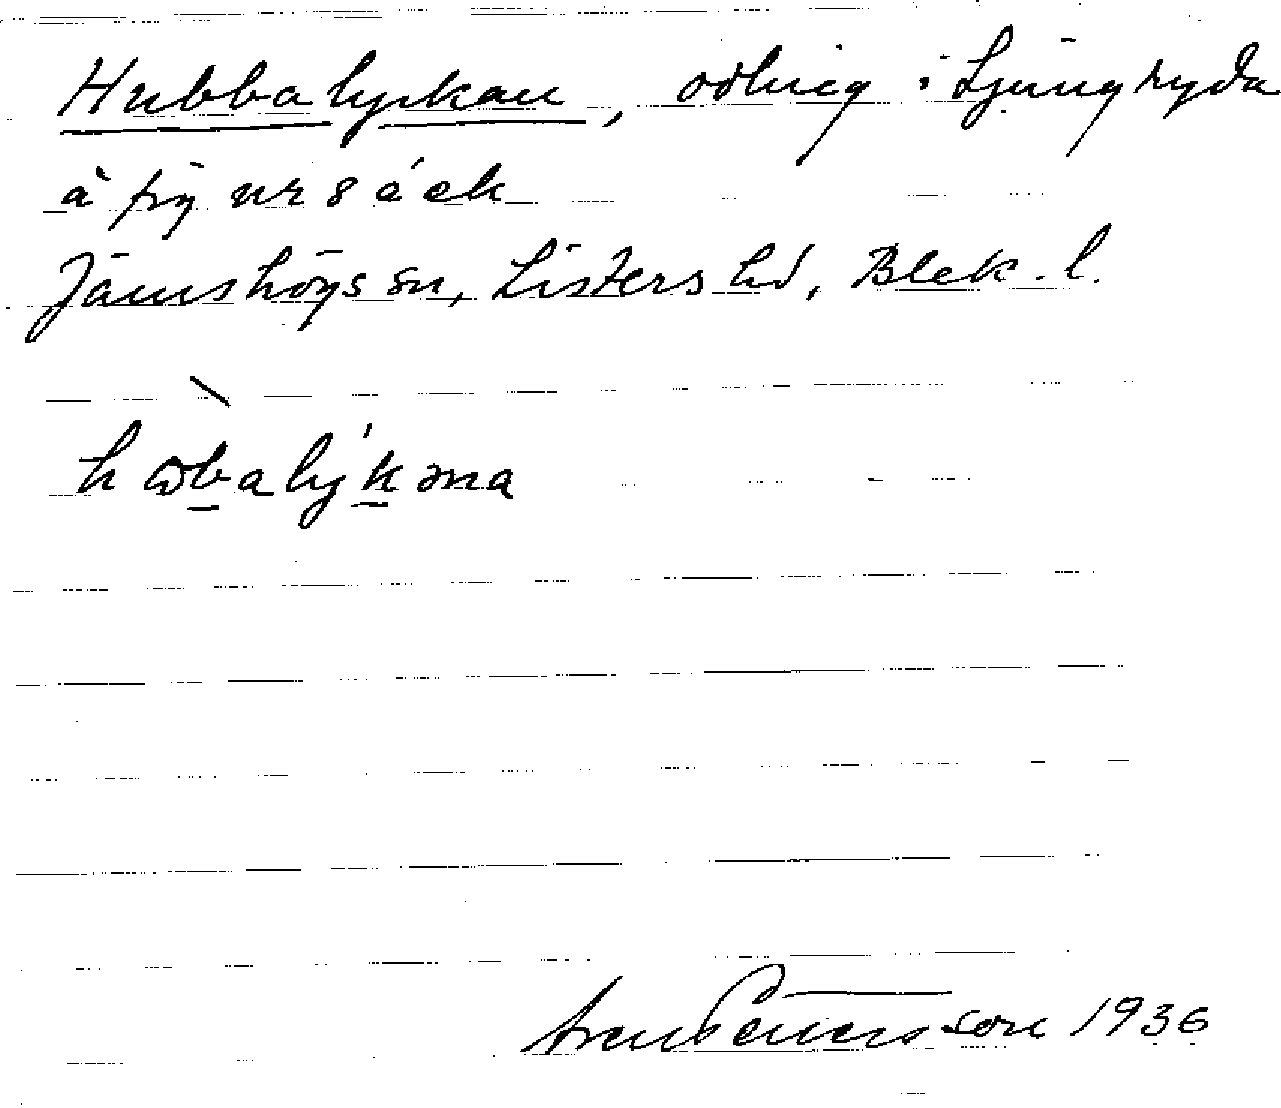 Hubbalyckan, odling i Ljungryda
å fig nr 8 å ek
Jämshögs sn, Listers hd, Blek. l.
hωbalykəna
son 1936